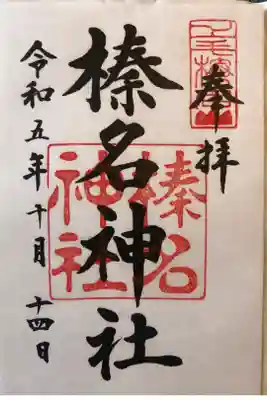 奉拝
榛名神社
榛名
神社
令和五年十月十四日